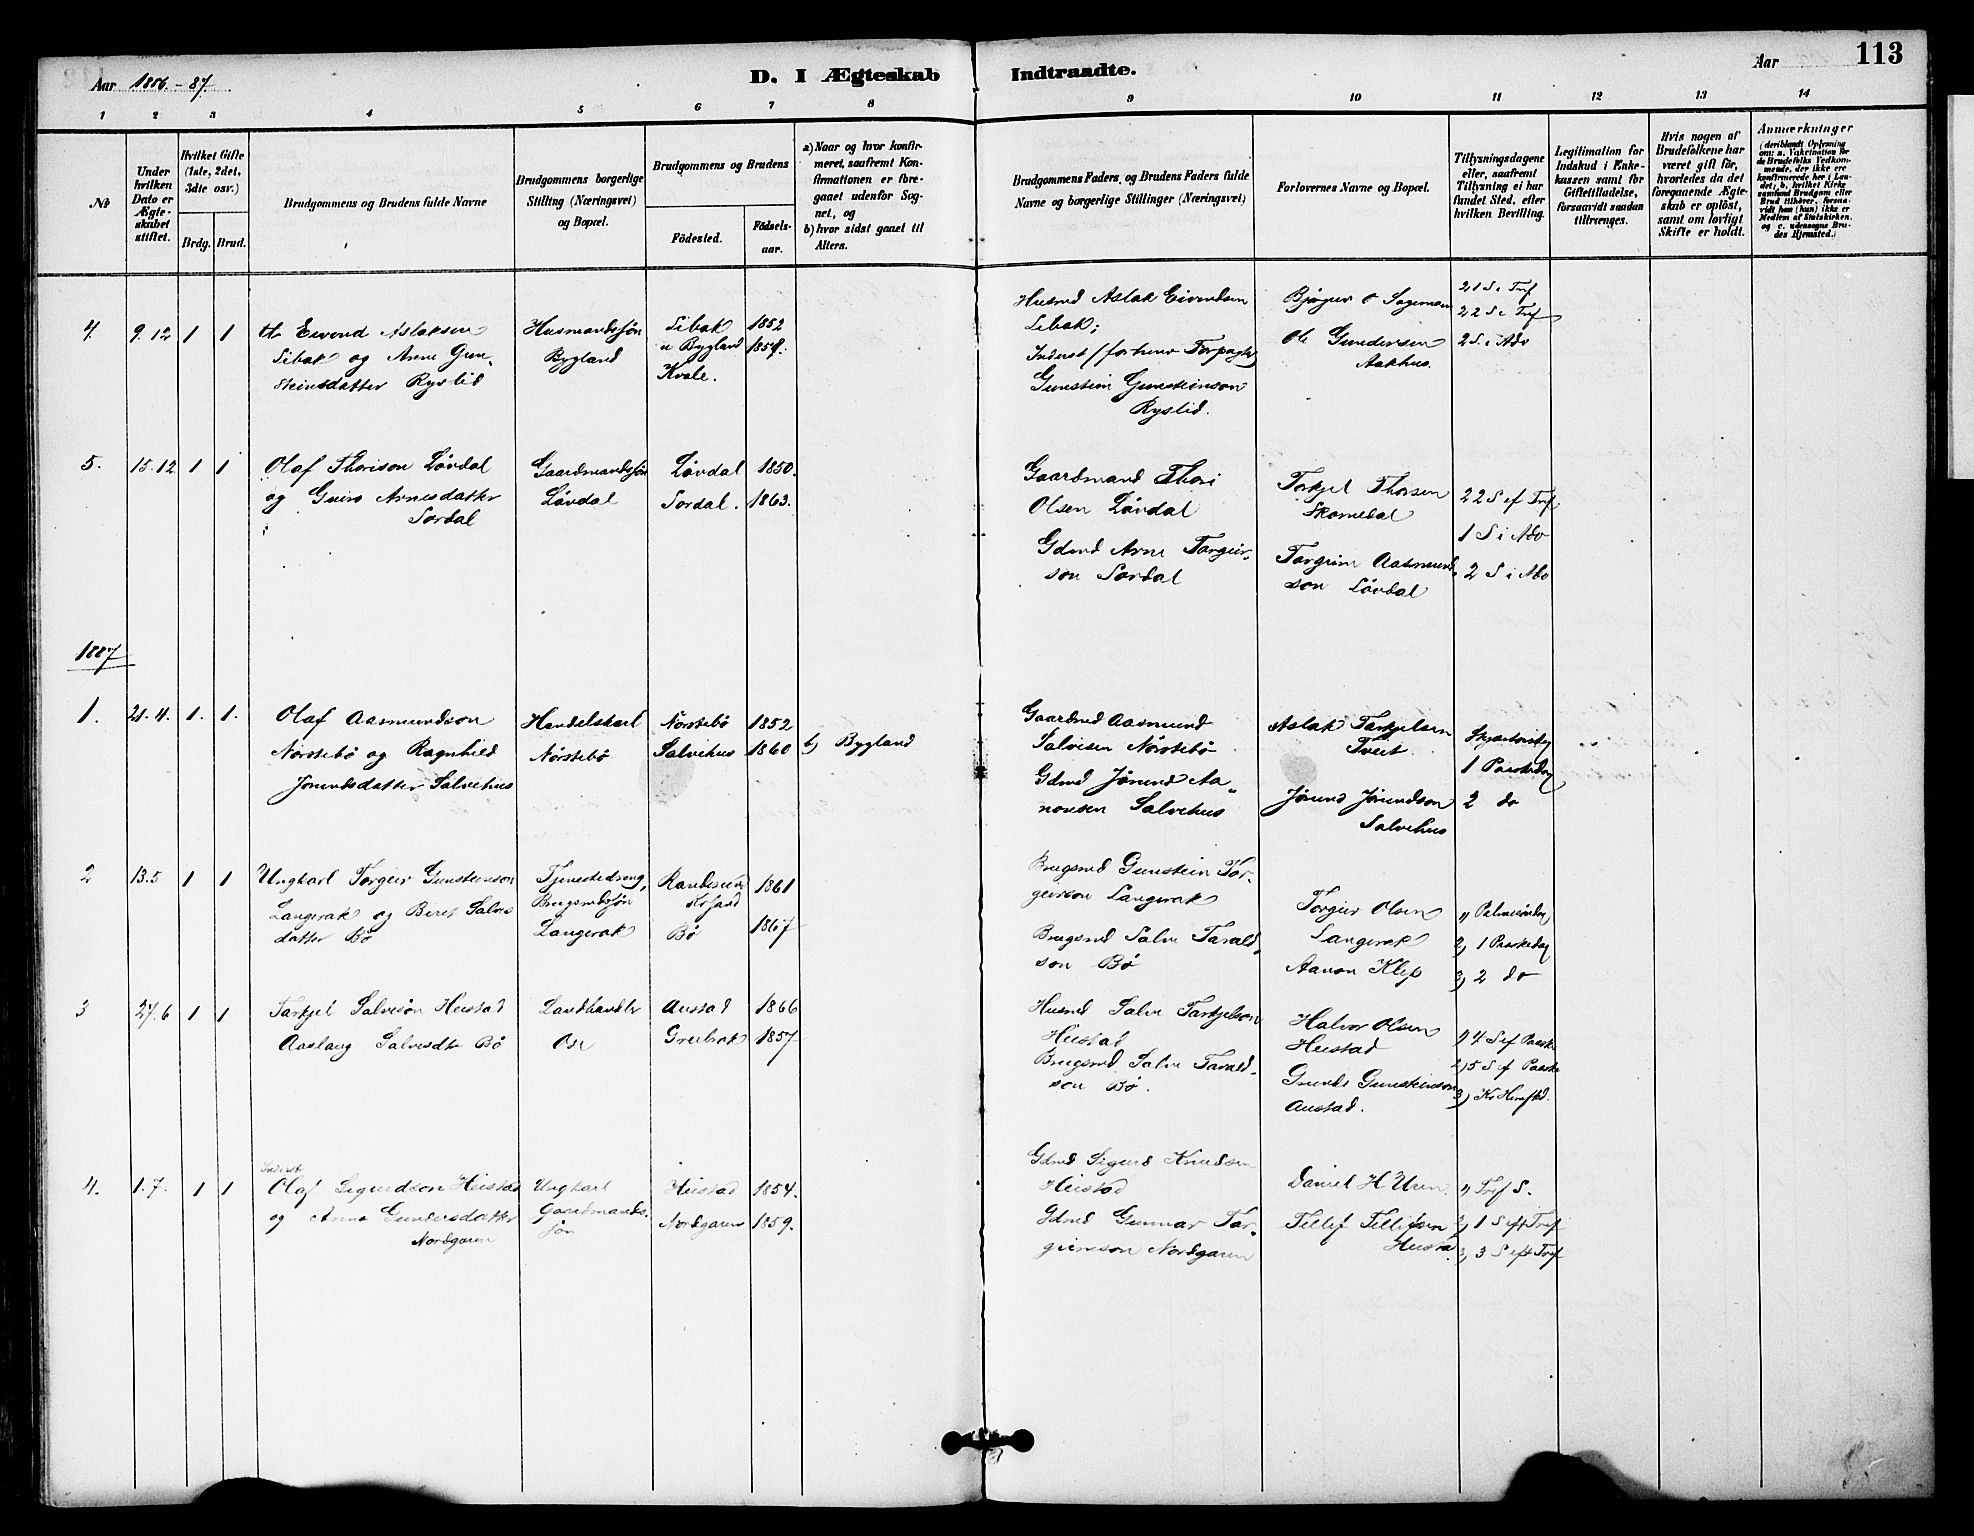 Aar 1886.-87.
D. I Ægteskab
Indtraadte.
Aar
113
1 2 3 4 5 6 7 8 9 10 11 12 13 14
No
Under hvilken Dato er Ægteskabet stiftet.
Hvilket Gifte (1ste, 2det, 3die osv.)
Brdg. Brud.
Brudgommens og Brudens fulde Navne
Brudgommens borgerlige Stilling (Næringsvei) og Bopæl.
Brudgommens og Brudens
Födested.
Födsels-aar.
a) Naar og hvor konfirmeret, saafremt Konfirmationen er foregaaet udenfor Sognet, og
b) hvor sidst gaaet til Alters.
Brudgommens Faders, og Brudens Faders fulde Navne og borgerlige Stillinger (Næringsvei)
Forlovernes Navne og Bopæl.
Tillysningsdagene eller, saafremt Tillysning ei har fundet Sted, efter hvilken Bevilling.
Legitimation for Indskud i Enkekassen samt for Giftetilladelse, forsaavidt saadan tiltrænges.
Hvis nogen af Brudefolkene har været gift för, hvorledes da det foregaaende Ægteskab er oplöst, samt om lovligt Skifte er holdt.
Anmærkninger
(deriblandt Oplysning om: a. Vakcination for de Brudefolks Vedkommende, der ikke ere konfirmerede her i Landet; b. hvilket Kirkesamfund Brudgom eller Brud tilhörer, forsaavidt han (hun) ikke er Medlem af Statskirken, og c. udensogns Brudes Hjemsted.)
4. 9.12 1 1
Eivend Aslaksen
Libak og Anne Gun-
steinsdatter Ryslid
Husmandssøn
Bygland
Libak 1852
Bygland 1858.
Kvale.
Husmd Aslak Eivendsen
Libak;
Inderst (forhenv Forpagter)
Gunstein Gunsteinson
Ryslid.
Ole Gundersen
Aakhus.
21 S e Tref
22 S e Tref
2 S. i Adv
5. 15.12 1 1
Olaf Thorison Løvdal
og Guro Arnesdatter
Sordal
Gaardmandssøn
Løvdal
Løvdal 1850.
Sordal. 1863.
Gaardmand Thori
Olsen Løvdal
Gdmd Arne Torgeir-
son Sordal
Torkjel Thorsen
Skomedal
Torgrim Aasmund-
son Løvdal
22 S ef Tref
1 S i Adv
2 S i Adv
1887
1. 21.4. 1. 1.
Olaf Aasmundson
Nørstebø og Ragnhild
Jørundsdatter Salvehus
Handelskarl
Nørstebø
Nørstebø 1852
Salvehus 1860
b) Bygland
Gaardmd Aasmund
Salvesen Nørstebø
Gdmd Jørund Aa-
nonsen Salvehus
Aslak Tarkjelsen
Tveit.
Jørund Jørundson
Salvehus
Skjærtorsdag
1 Paaskedag
2 do
2 13.5 1 1
Ungkarl Torgeir Gunsteinson
Langerak og Beret Salves
datter Bø
Tjenestedreng,
Brugsmdssøn
Langerak
Randesund 1861
Krsand
Bø 1867
Brugsmd Gunstein Tor-
geirson Langerak
Brugsmd Salve Tarald-
son Bø
Torgier Olsen
Langerak
Aanon Klep
1) Palmesøndag
2) 1 Paaskedag
3) 2 do
3 27.6 1 1
Tarkjel Salvesøn Heistad
Aaslaug Salvesdtr Bø
Landhandler
Ose
Austad 1866
1857
Husmd Salve Tarkjelson
Heistad
Brugsmd Salve Tarald-
son Bø.
Halvor Olsen
Heistad
Gunsteinson
Austad.
1) 4 S ef Paaske
2) 5 S ef Paaske
3) Kr Himftd.
4. 1.7. 1 1
Inderst
Olaf Sigurdson Heistad
og Anne Gundersdatter
Nordgaren
Ungkarl
Gaardmands-
søn
Heistad 1854.
Nordgaren 1859.
Gdmd Sigurd Knudsen
Heistad
Gdmd Gunnar Tor-
geirson Nordgaren
Daniel H Uren.
Tellef Tellefsen
1) Tref S.
2) 1 S eft Tref
3) 3 S eft Tref